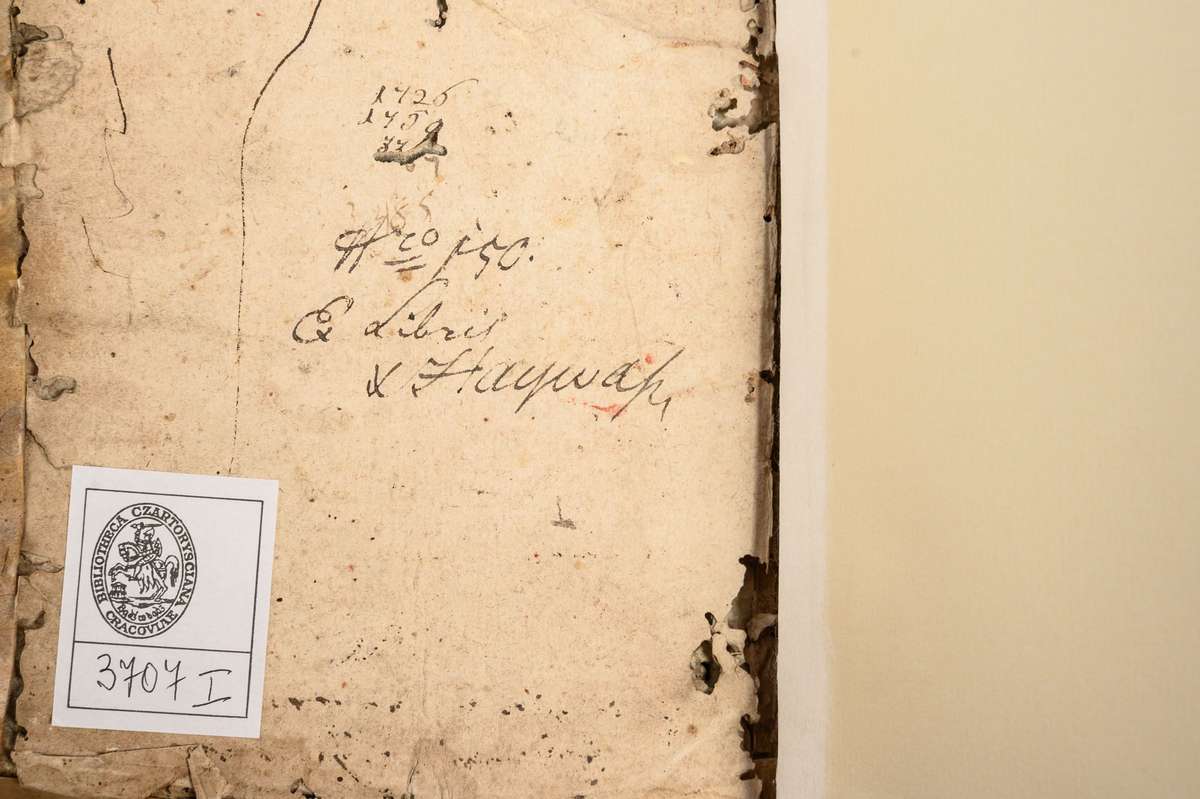 1726
1459
Nro 150.
Ex Libris
X Haywas,
BIBLIOTHECA CZARTORYSCIANA
CRACOVIAE
3707 I